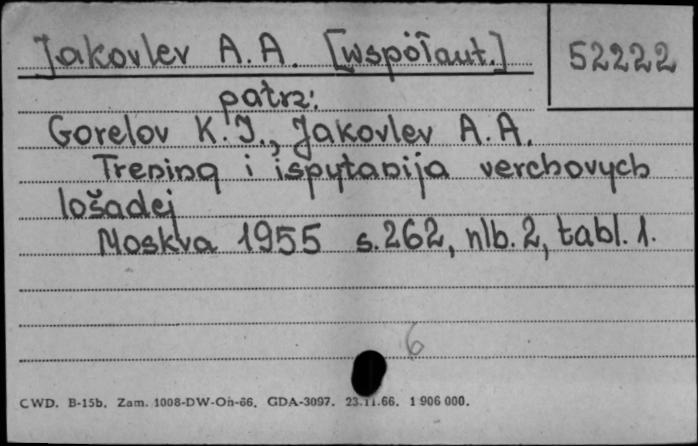 Jakovlev A.A. [współaut.]
52222
patrz:
Gorelov K.I., Jakovlev A.A.
Trening i ispytanija verchovych
lošadej
Moskva 1955 s.262, nlb.2, tabl.1.
6
CWD. B-15b. Zam. 1008-DW-Oń-66. GDA-3097. 23.11.66. 1 906 000.